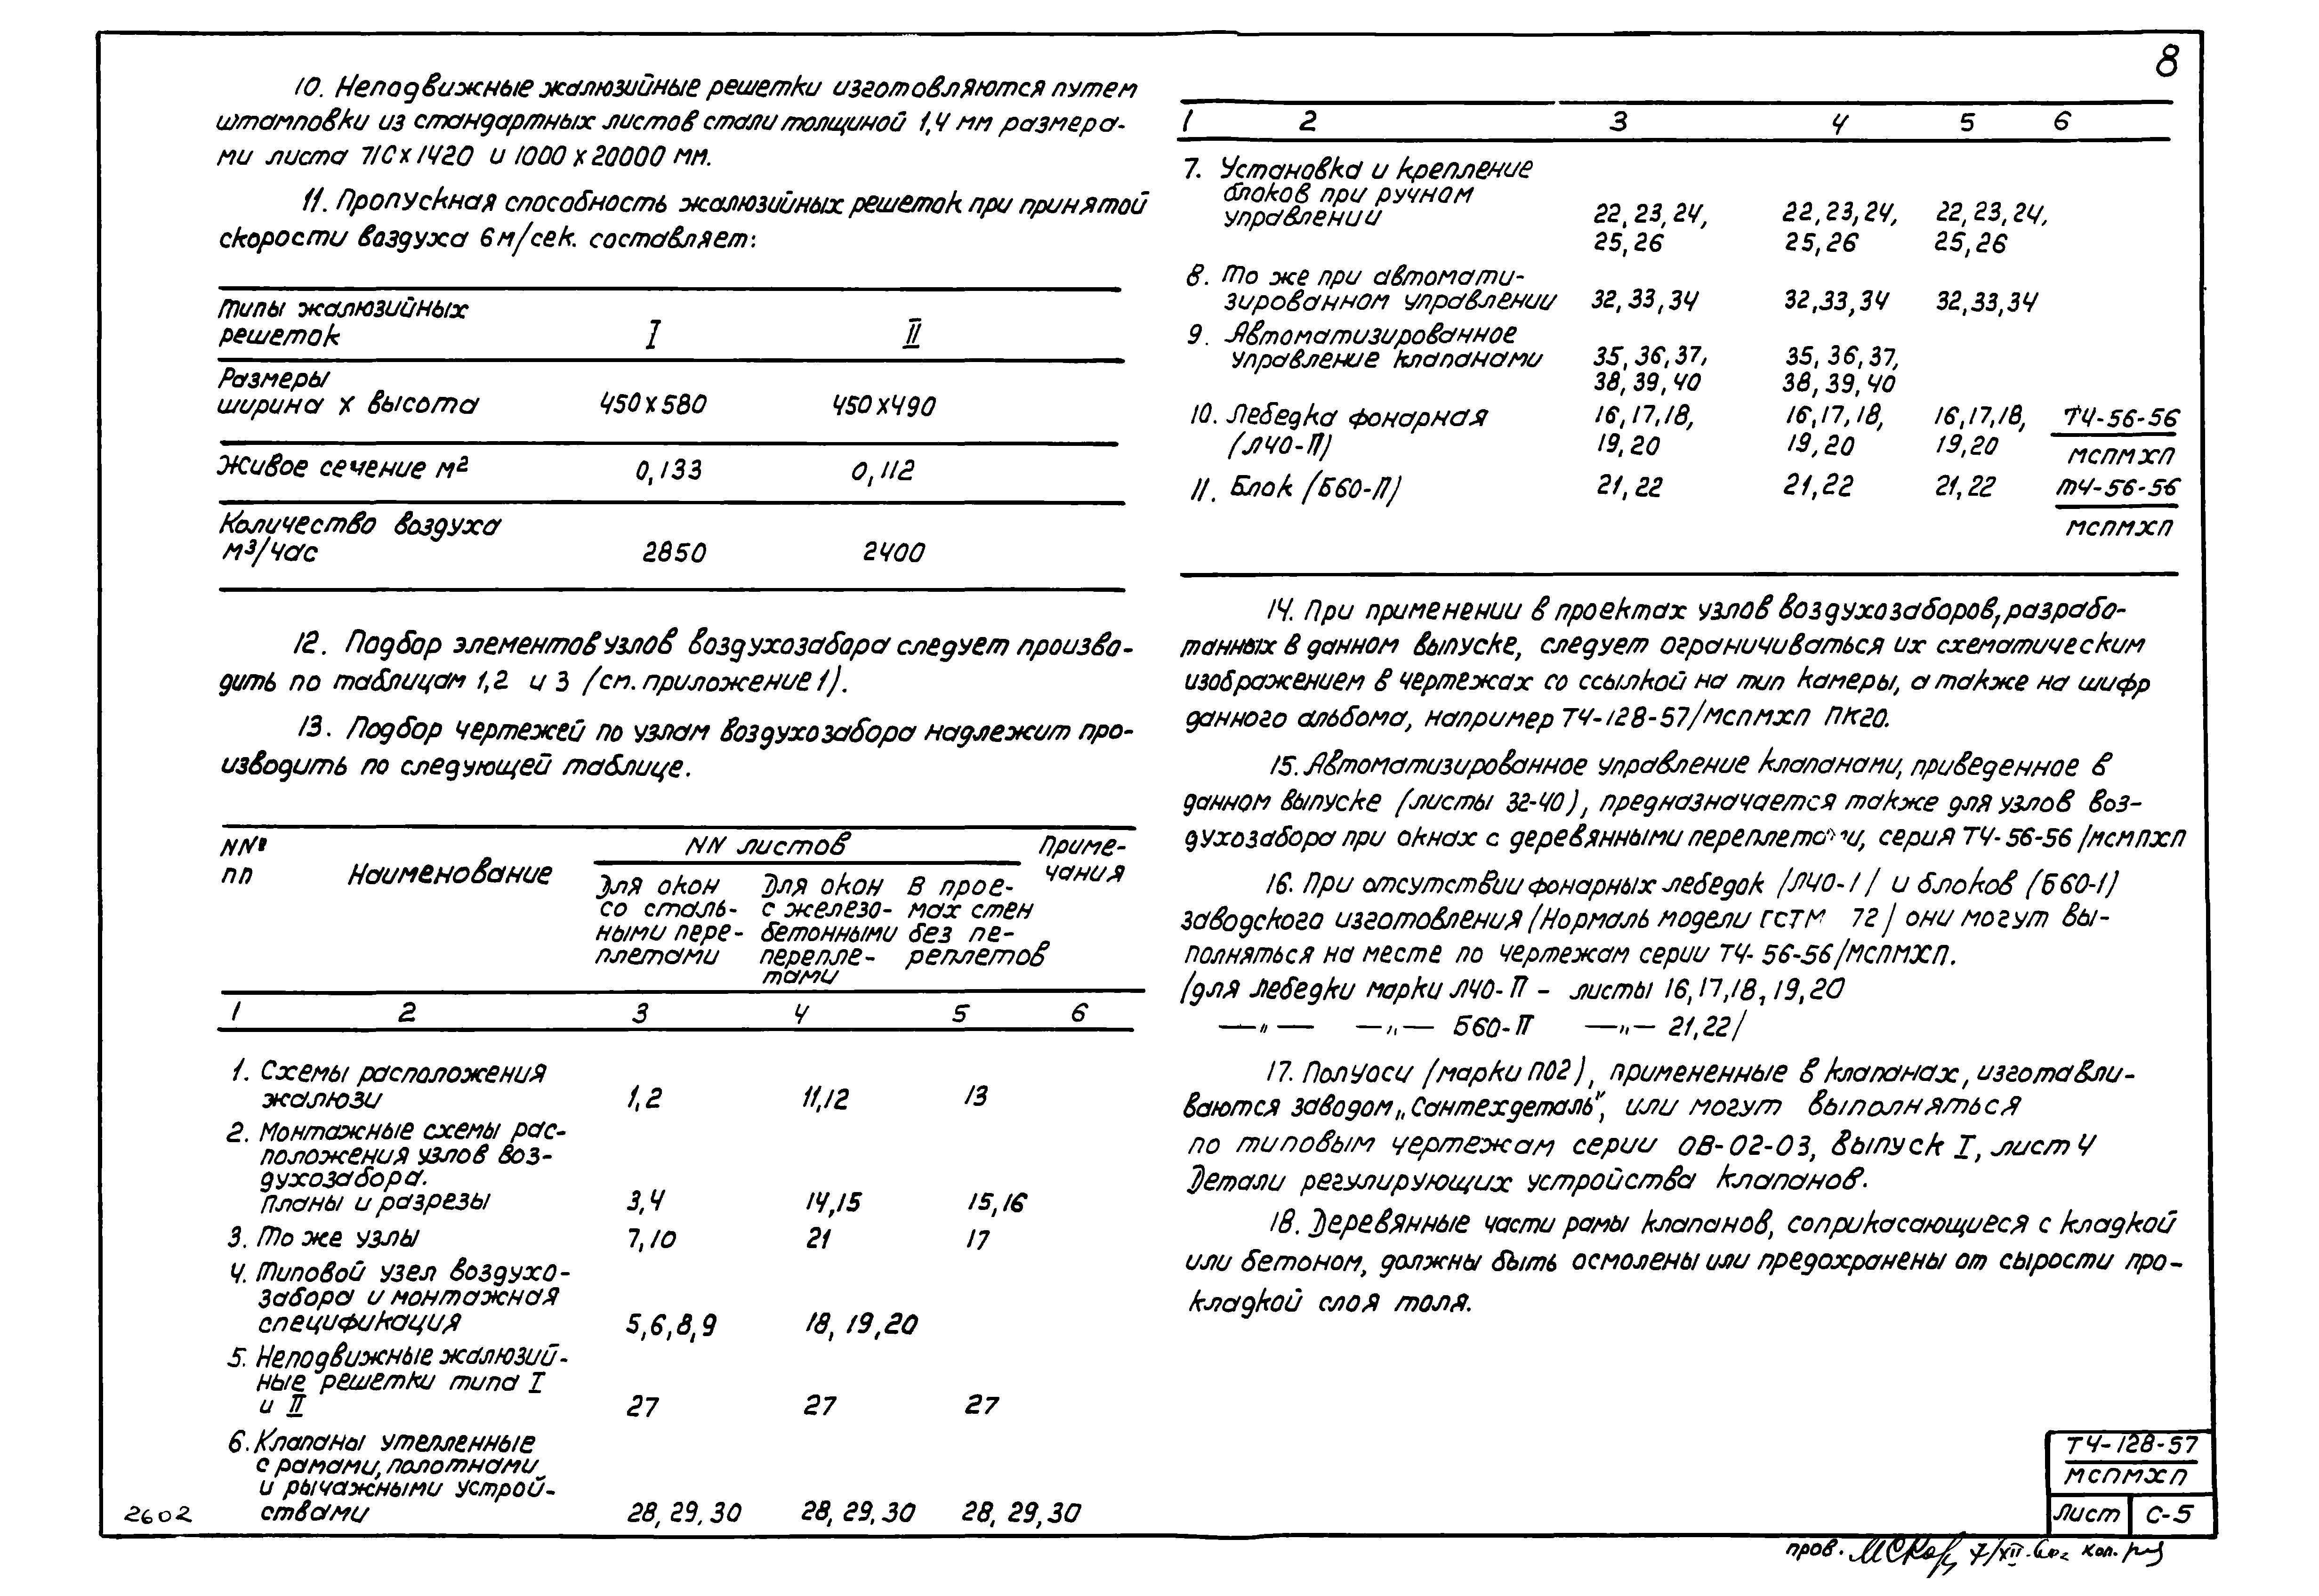 8
10. Неподвижные жалюзийные решетки изготовляются путем
штамповки из стандартных листов стали толщиной 1,4 мм размера-
ми листа 71С х 1420 и 1000 х 20000 мм.
11. Пропускная способность жалюзийных решеток при принятой
скорости воздуха 6 м/сек. составляет:
Типы жалюзийных
решеток I II
Размеры
ширина х высота 450х580 450х490
Живое сечение м² 0,133 0,112
Количество воздуха
м³/час 2850 2400
12. Подбор элементов узлов воздухозабора следует произво-
дить по таблицам 1,2 и 3 /см. приложение 1).
13. Подбор чертежей по узлам воздухозабора надлежит про-
изводить по следующей таблице.
NNº NN листов Приме-
пп Наименование чания
Для окон Для окон В прое-
со сталь- с железо- мах стен
ными пере- бетонными без пе-
плетами перепле- реплетов
тами
1 2 3 4 5 6
1. Схемы расположения
жалюзи 1,2 11,12 13
2. Монтажные схемы рас-
положения узлов воз-
духозабора.
Планы и разрезы 3,4 14,15 15,16
3. То же узлы 7,10 21 17
4. Типовой узел воздухо-
забора и монтажная
спецификация 5,6,8,9 18, 19,20
5. Неподвижные жалюзий-
ные решетки типа I
и II 27 27 27
6. Клапаны утепленные
с рамами, полотнами
и рычажными устрой-
ствами 28, 29, 30 28, 29, 30 28, 29, 30
1 2 3 4 5 6
7. Установка и крепление
блоков при ручном
управлении 22, 23, 24, 22, 23, 24, 22, 23, 24,
25, 26 25, 26 25, 26
8. То же при автомати-
зированном управлении 32, 33, 34 32,33,34 32,33,34
9. Автоматизированное
управление клапанами 35, 36, 37, 35, 36, 37,
38, 39, 40 38, 39, 40
10. Лебедка фонарная 16, 17, 18, 16, 17, 18, 16, 17, 18, ТЧ-56-56
(ЛЧО-П) 19, 20 19, 20 19, 20 МСПМХП
11. Блок (Б60-П) 21, 22 21, 22 21, 22 ТЧ-56-56
МСПМХП
14. При применении в проектах узлов воздухозаборов, разрабо-
танных в данном выпуске, следует ограничиваться их схематическим
изображением в чертежах со ссылкой на тип камеры, а также на шифр
данного альбома, например ТЧ-128-57/МСПМХП ПК20.
15. Автоматизированное управление клапанами, приведенное в
данном выпуске (листы 32-40), предназначается также для узлов воз-
духозабора при окнах с деревянными переплетами, серия ТЧ-56-56/МСМПХП
16. При отсутствии фонарных лебедок /ЛЧО-1/ и блоков (Б60-1)
заводского изготовления /Нормаль модели ГСТМ 72/ они могут вы-
полняться на месте по чертежам серии ТЧ-56-56/МСПМХП.
/для лебедки марки ЛЧО-П - листы 16,17,18,19,20
—„— —„— Б60-П —„— 21,22/
17. Полуоси /марки П02), примененные в клапанах, изготавли-
ваются заводом „Сантехдеталь", или могут выполняться
по типовым чертежам серии ОВ-02-03, выпуск I, лист 4
Детали регулирующих устройства клапанов.
18. Деревянные части рамы клапанов, соприкасающиеся с кладкой
или бетоном, должны быть осмолены или предохранены от сырости про-
кладкой слоя толя.
ТЧ-128-57
МСПМХП
Лист С-5
2602
пров. 7/XII кол.